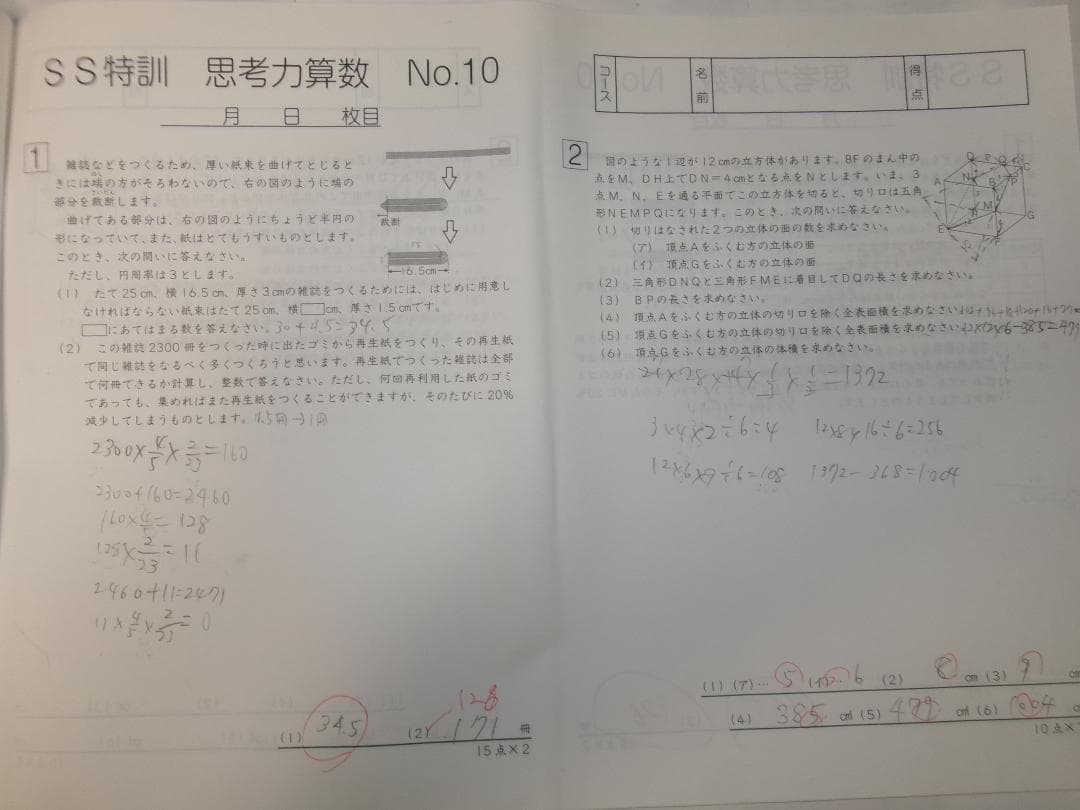 SS特訓 思考力算数 No.10
月 日 枚目
1
雑誌などをつくるため、厚い紙束を曲げてとじると
きには端の方がそろわないので、右の図のように端の
部分を裁断します。
曲げてある部分は、右の図のようにちょうど半円の
形になっていて、また、紙はとてもうすいものとします。
このとき、次の問いに答えなさい。
ただし、円周率は3とします。
裁断
15
16.5cm
(1) たて25cm、横16.5cm、厚さ3cmの雑誌をつくるためには、はじめに用意し
なければならない紙束はたて25cm、横□cm、厚さ1.5cmです。
□にあてはまる数を答えなさい。30+4.5=34.5
(2) この雑誌2300冊をつくった時に出たゴミから再生紙をつくり、その再生紙
で同じ雑誌をなるべく多くつくろうと思います。再生紙でつくった雑誌は全部
で何冊できるか計算し、整数で答えなさい。ただし、何回再利用した紙のゴミ
であっても、集めればまた再生紙をつくることができますが、そのたびに20%
減少してしまうものとします。
2300×4/5×2/23=160
2300+160=2460
160×4/5=128
128×2/23=11
2460+11=2471
11×4/5×2/23=0
128
(1) 34.5 (2) 171 冊
15点×2
コース 名前 得点
2
図のような1辺が12cmの立方体があります。BFのまん中の
点をM、DH上でDN=4cmとなる点をNとします。いま、3
点M、N、Eを通る平面でこの立方体を切ると、切り口は五角
形NEMPQになります。このとき、次の問いに答えなさい。
(1) 切りはなされた2つの立体の面の数を求めなさい。
(ア) 頂点Aをふくむ方の立体の面
(イ) 頂点Gをふくむ方の立体の面
(2) 三角形DNQと三角形FMEに着目してDQの長さを求めなさい。
(3) BPの長さを求めなさい。
(4) 頂点Aをふくむ方の立体の切り口を除く全表面積を求めなさい。
(5) 頂点Gをふくむ方の立体の切り口を除く全表面積を求めなさい。12×12×6-385=479
(6) 頂点Gをふくむ方の立体の体積を求めなさい。
D Q C N P A B M G E F
3×4×2÷6=4 12×8×16÷6=256
12×6×9÷6=108 1372-368=1004
(1) (ア)… 5 (イ)… 6 (2) 8 cm (3) 9 cm
(4) 385 ㎠ (5) 479 ㎠ (6) 1004 cm
10点×